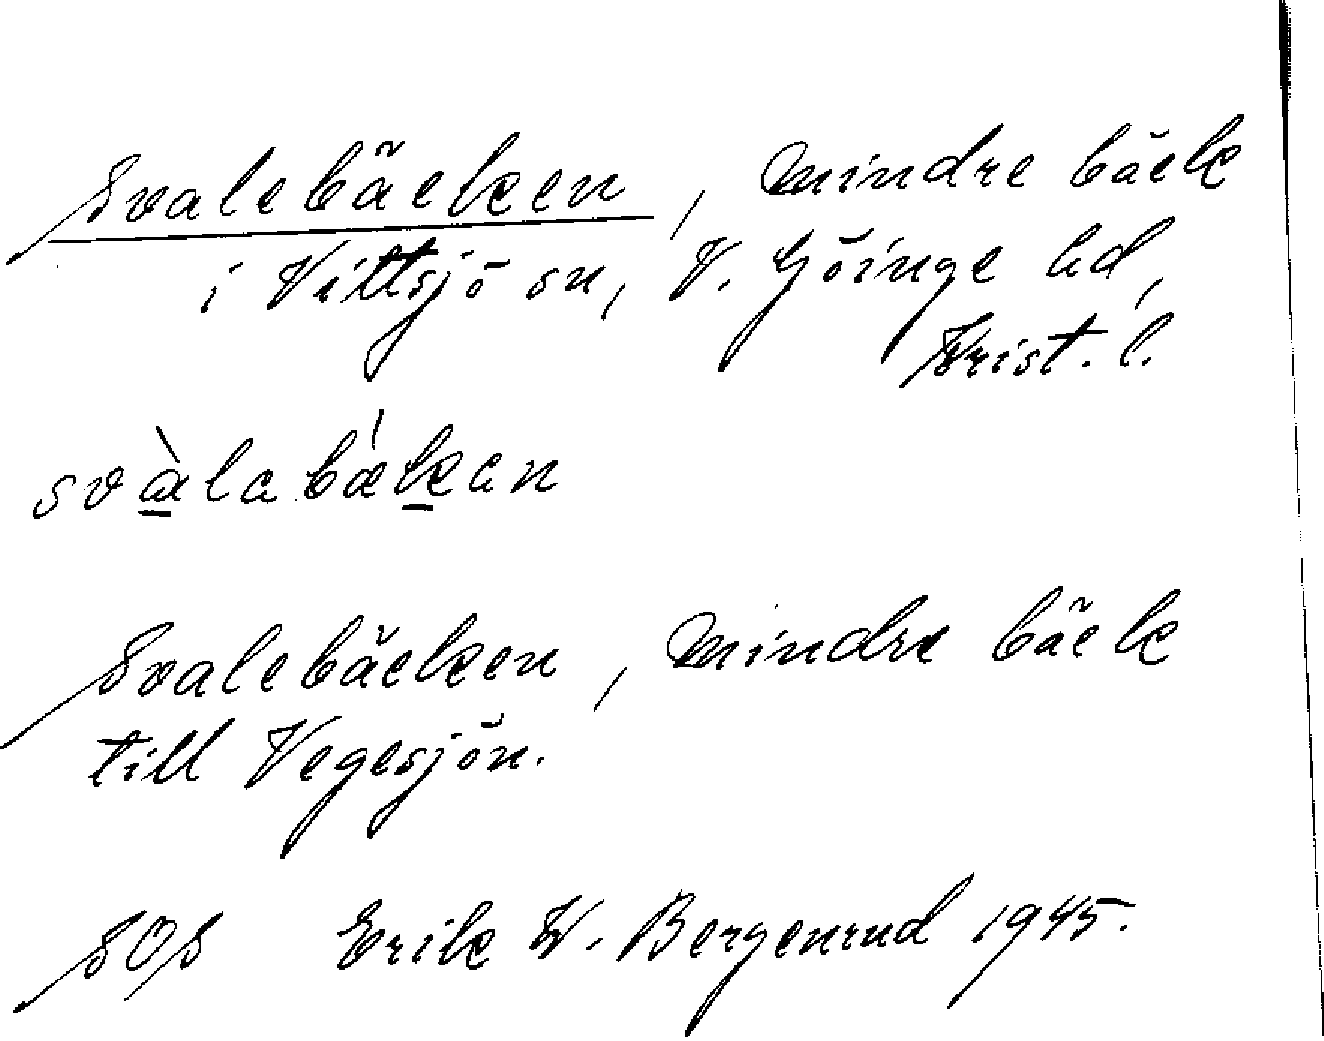 Svalebäcken, mindre bäck
i Vittsjö sn, V. Göinge hd,
Krist. l.
svàlabǽkan
Svalebäcken, mindre bäck
till Vegesjön.
SOS Erik W. Bergenrud 1945.